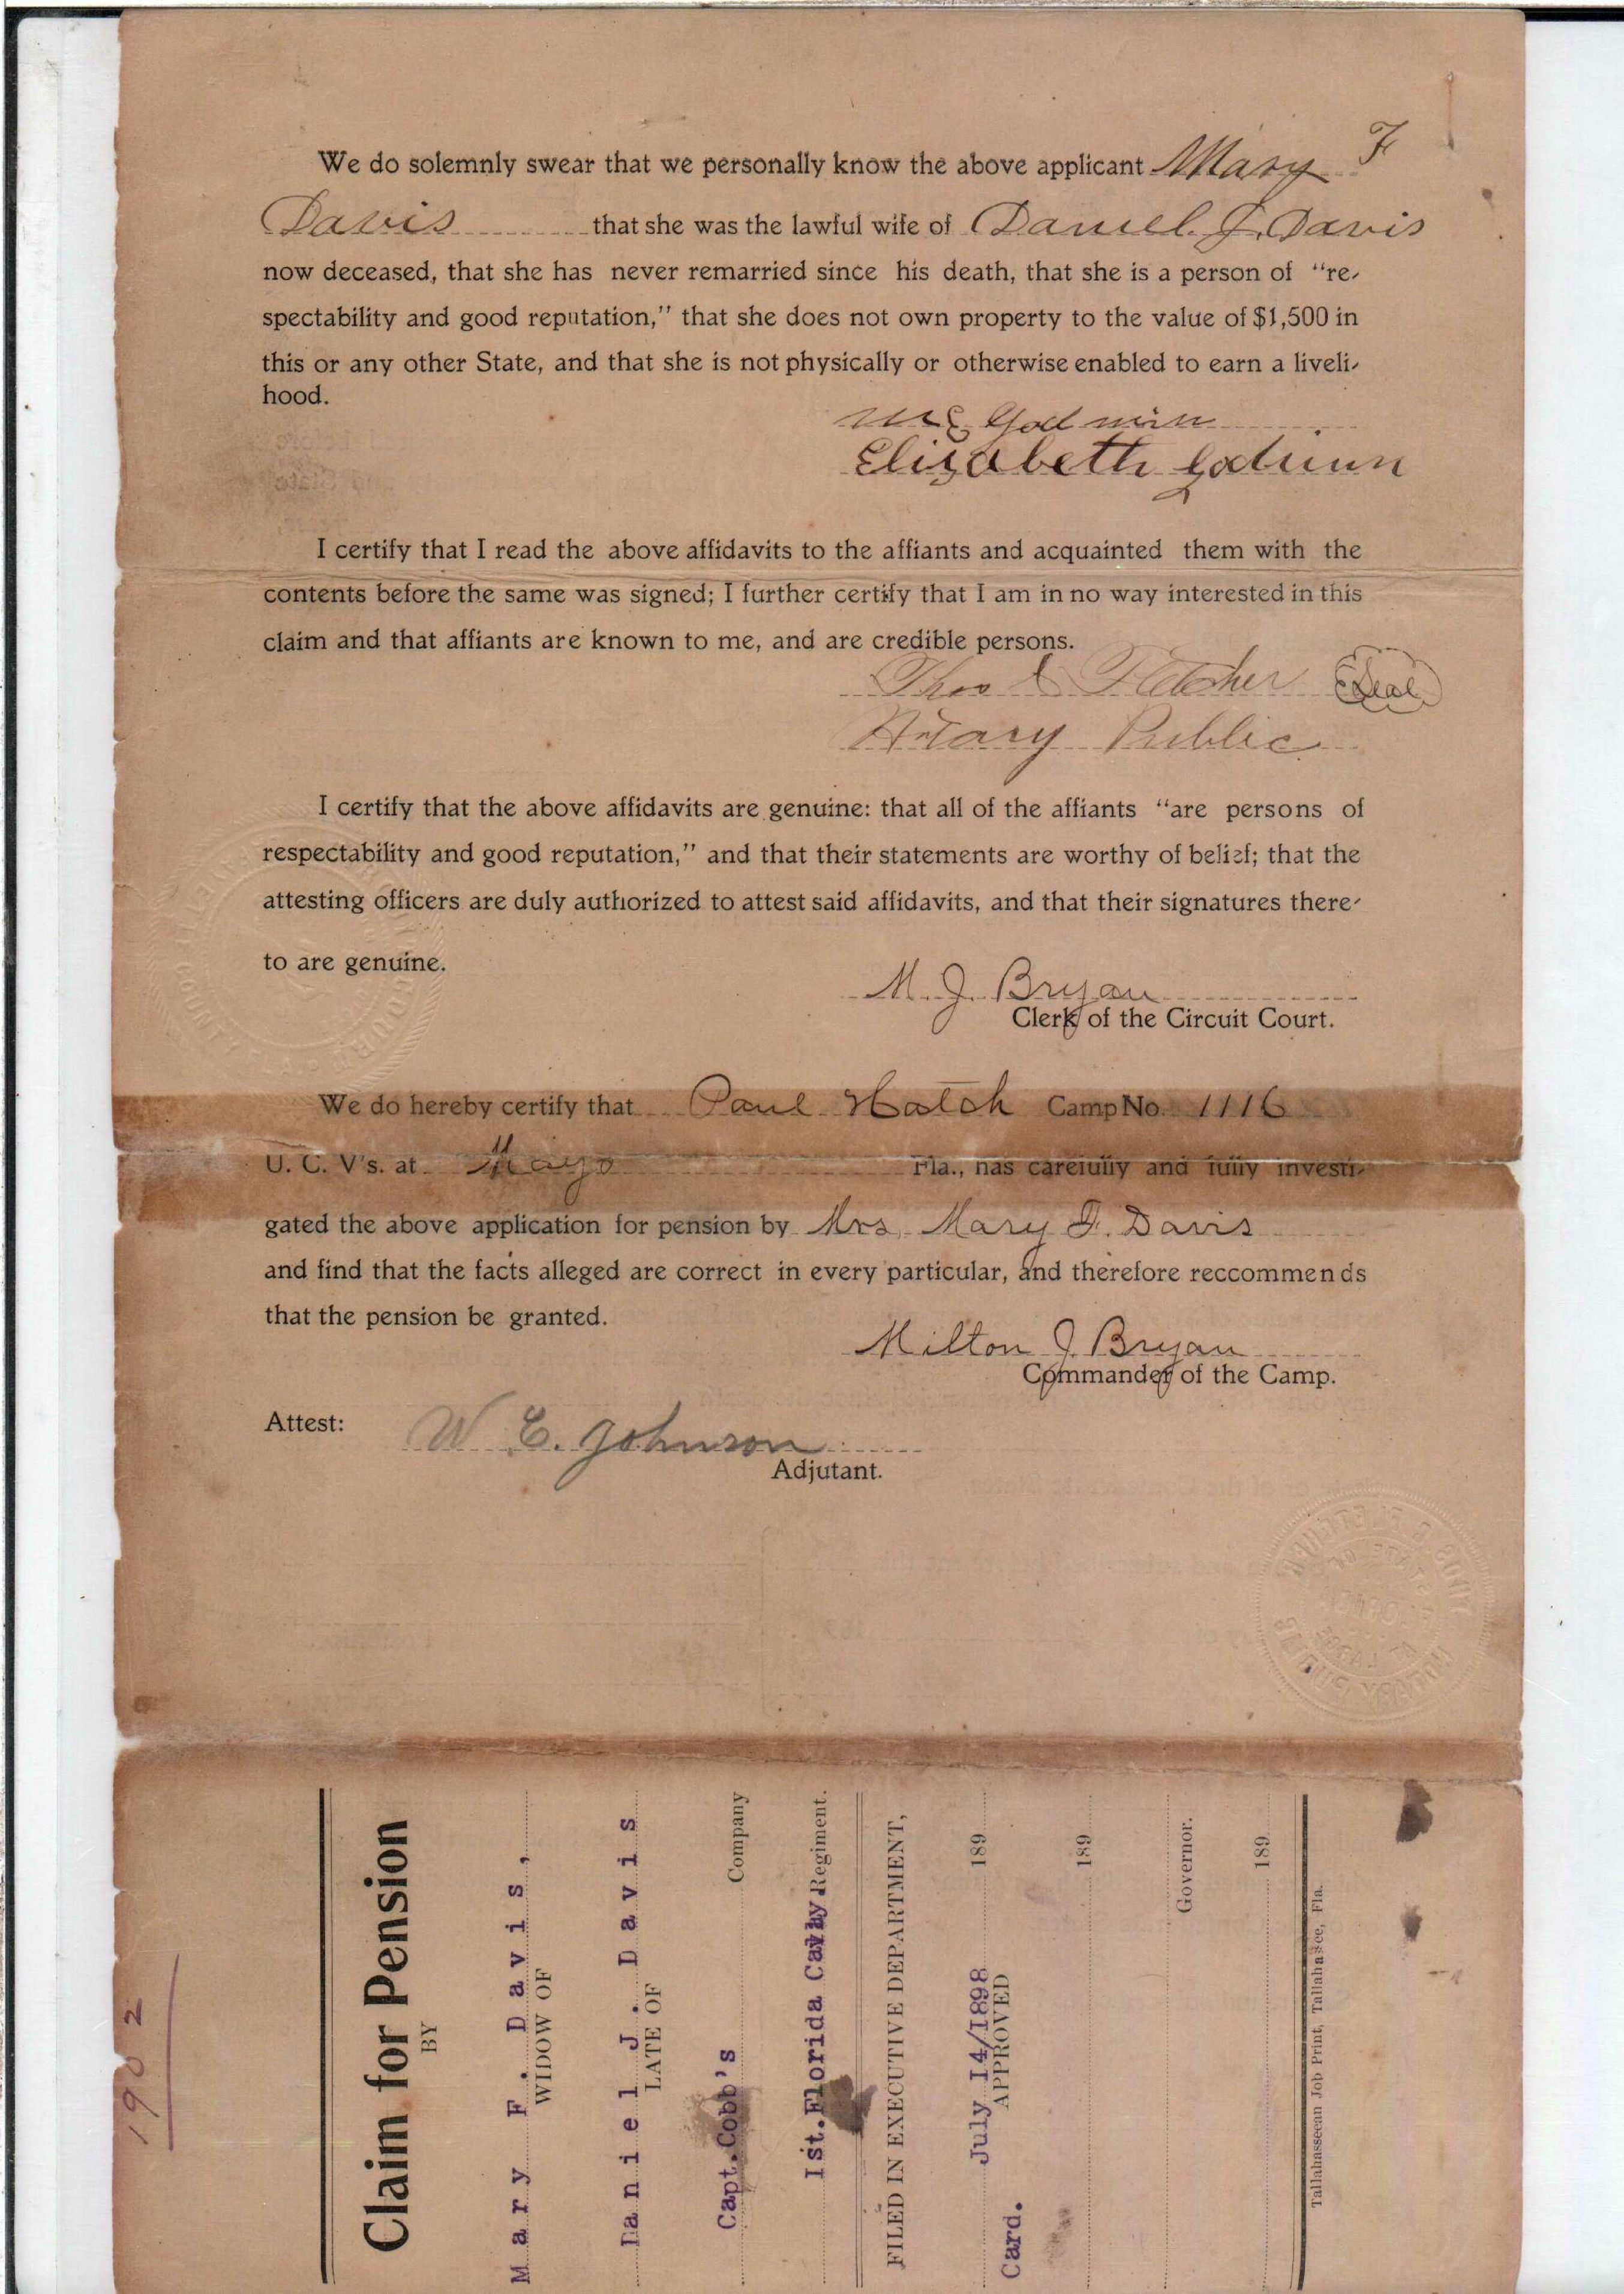 We do solemnly swear that we personally know the above applicant Mary F
Davis that she was the lawful wife of Daniel. J. Davis
now deceased, that she has never remarried since his death, that she is a person of “re-
spectability and good reputation,” that she does not own property to the value of $1,500 in
this or any other State, and that she is not physically or otherwise enabled to earn a liveli-
hood.
Godwin
Elizabeth Godwin
I certify that I read the above affidavits to the affiants and acquainted them with the
contents before the same was signed; I further certify that I am in no way interested in this
claim and that affiants are known to me, and are credible persons.
Thos S Fletcher Seal
Notary Public
I certify that the above affidavits are genuine: that all of the affiants “are persons of
respectability and good reputation,” and that their statements are worthy of belief; that the
attesting officers are duly authorized to attest said affidavits, and that their signatures there-
to are genuine.
M. J. Bryan
Clerk of the Circuit Court.
We do hereby certify that Paul Hatch Camp No. 1116
U. C. V's. at Mayo Fla., has carefully and fully investi-
gated the above application for pension by Mrs. Mary F. Davis
and find that the facts alleged are correct in every particular, and therefore reccommends
that the pension be granted.
Milton J. Bryan
Commander of the Camp.
Attest: W E. Johnson
Adjutant.
1902
Claim for Pension
BY
Mary F. Davis,
WIDOW OF
Daniel J. Davis
LATE OF
Capt. Cobb's Company
1st. Florida Cavly. Regiment.
FILED IN EXECUTIVE DEPARTMENT,
July 14/1898 189
APPROVED
Card.
189
Governor.
189
Tallahasseean Job Print, Tallahassee, Fla.